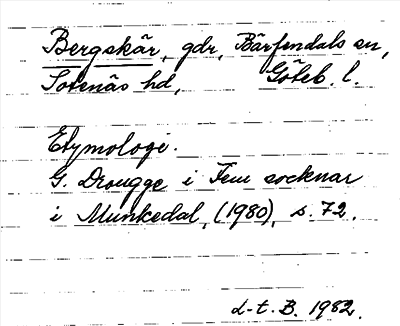 Bergskär, gdr, Bärfendals sn,
Sotenäs hd, Göteb. l.
Etymologi.
G. Drougge i Fem socknar
i Munkedal, (1980), s. 72.
d-t. B. 1982.